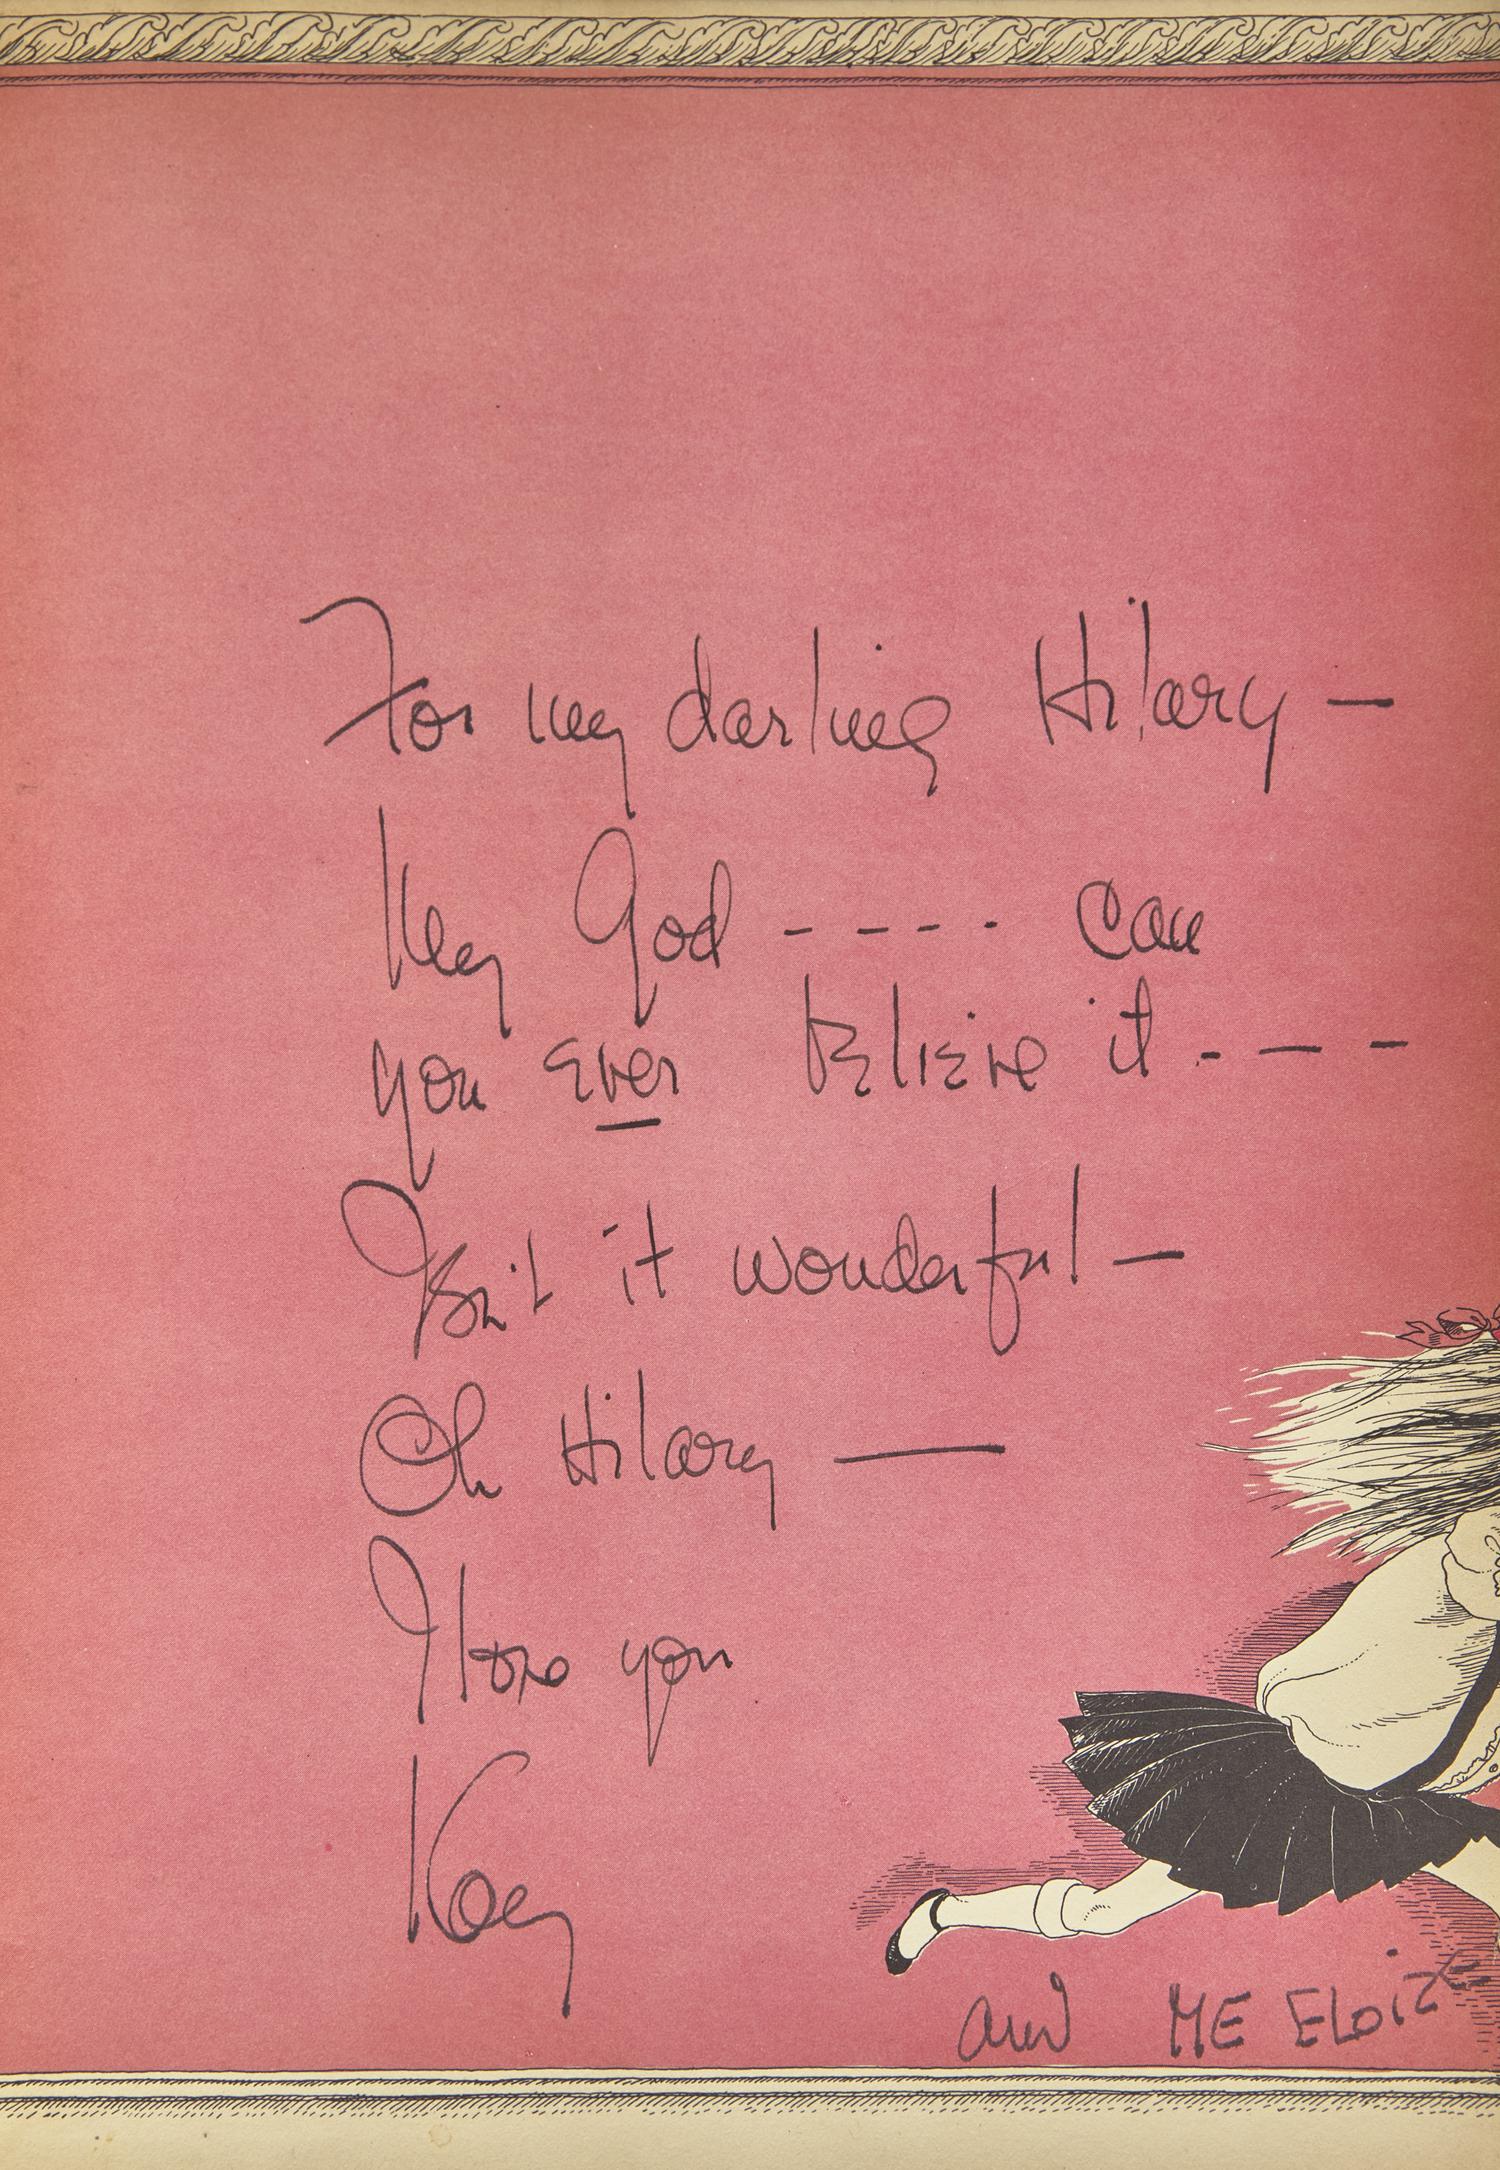 For my darling Hilary —
My God - - - - can
you ever believe it - - -
Isn't it wonderful —
Oh Hilary —
I love you
Kay
and ME ELoiZE